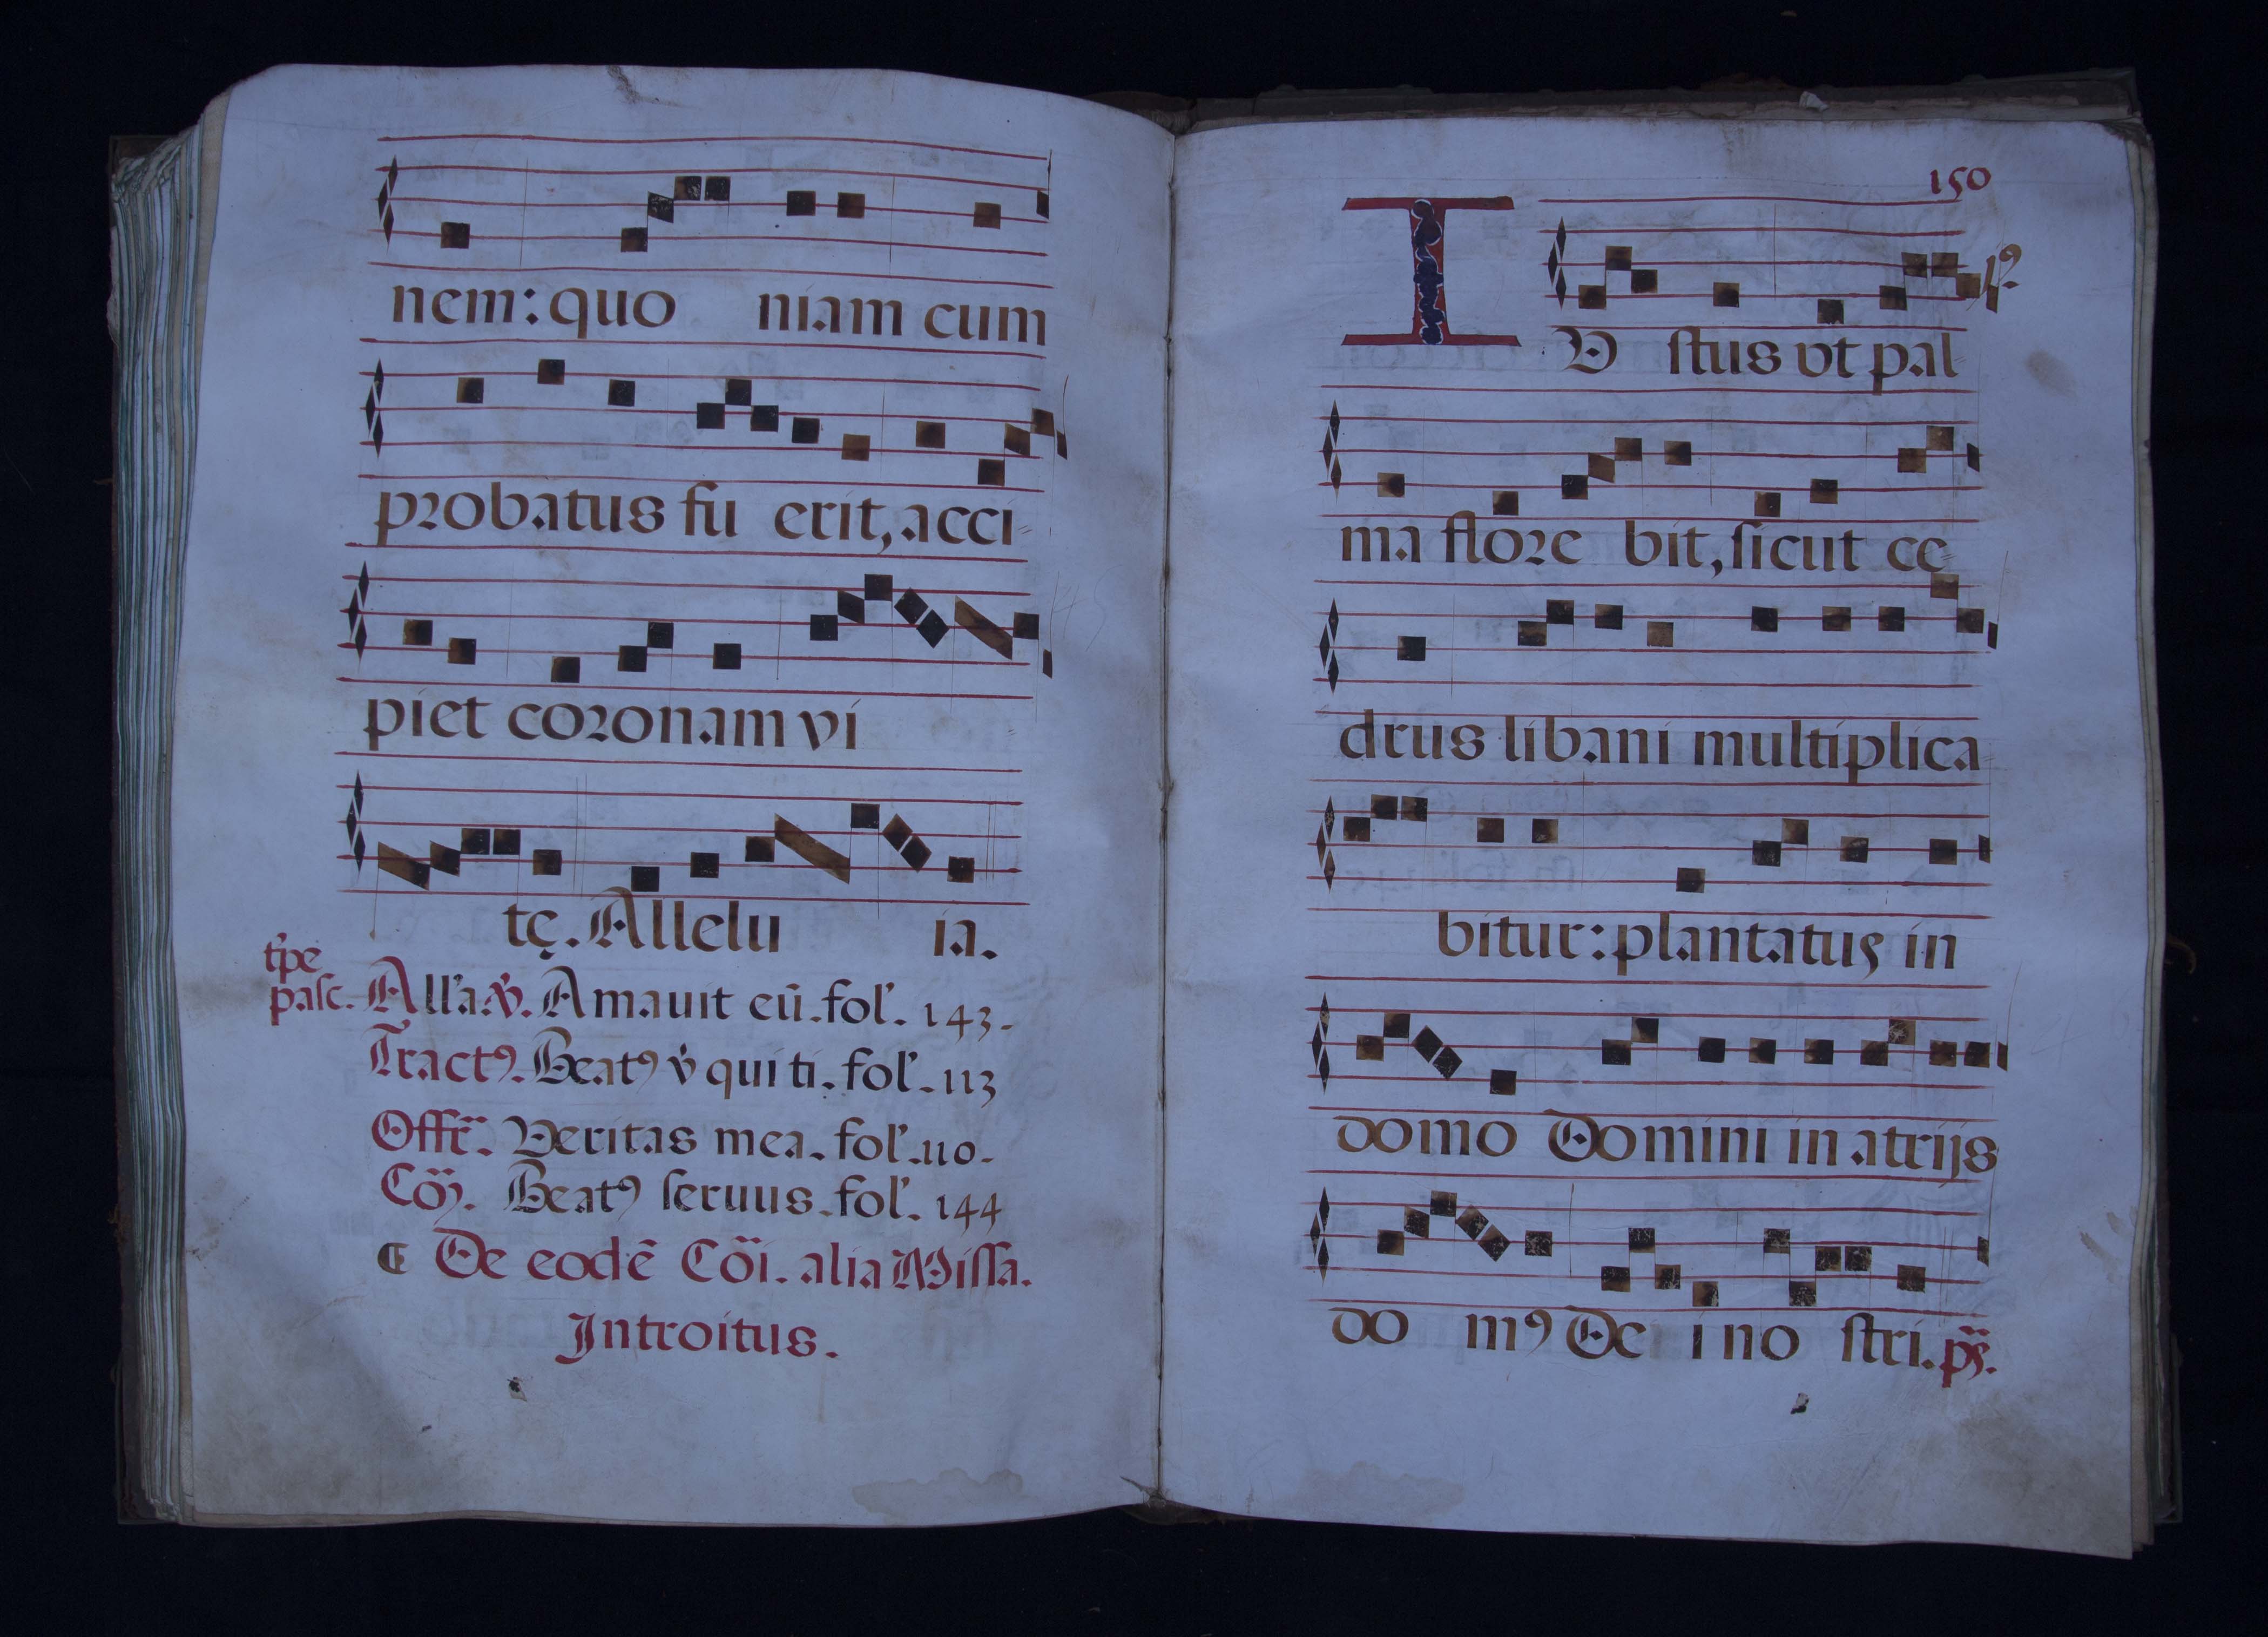 nem: quo niam cum
probatus fu erit, acci
piet coronam vi
tę. Allelu ia.
tp̄e
pasc. All'a. v̇. Amauit eū. fol'. 143.
Tractꝰ. Beatꝰ v̇ qui ti. fol'. 113
Offr̄. Veritas mea. fol'. 110.
Cō̄. Beatꝰ seruus. fol'. 144
De eodē Cōi. alia Missa.
Introitus.
150
IV stus vt pal
ma flore bit, sicut ce
drus libani multiplica
bitur: plantatus in
domo Domini in atrijs
do mꝰ De i no stri. ps̄.